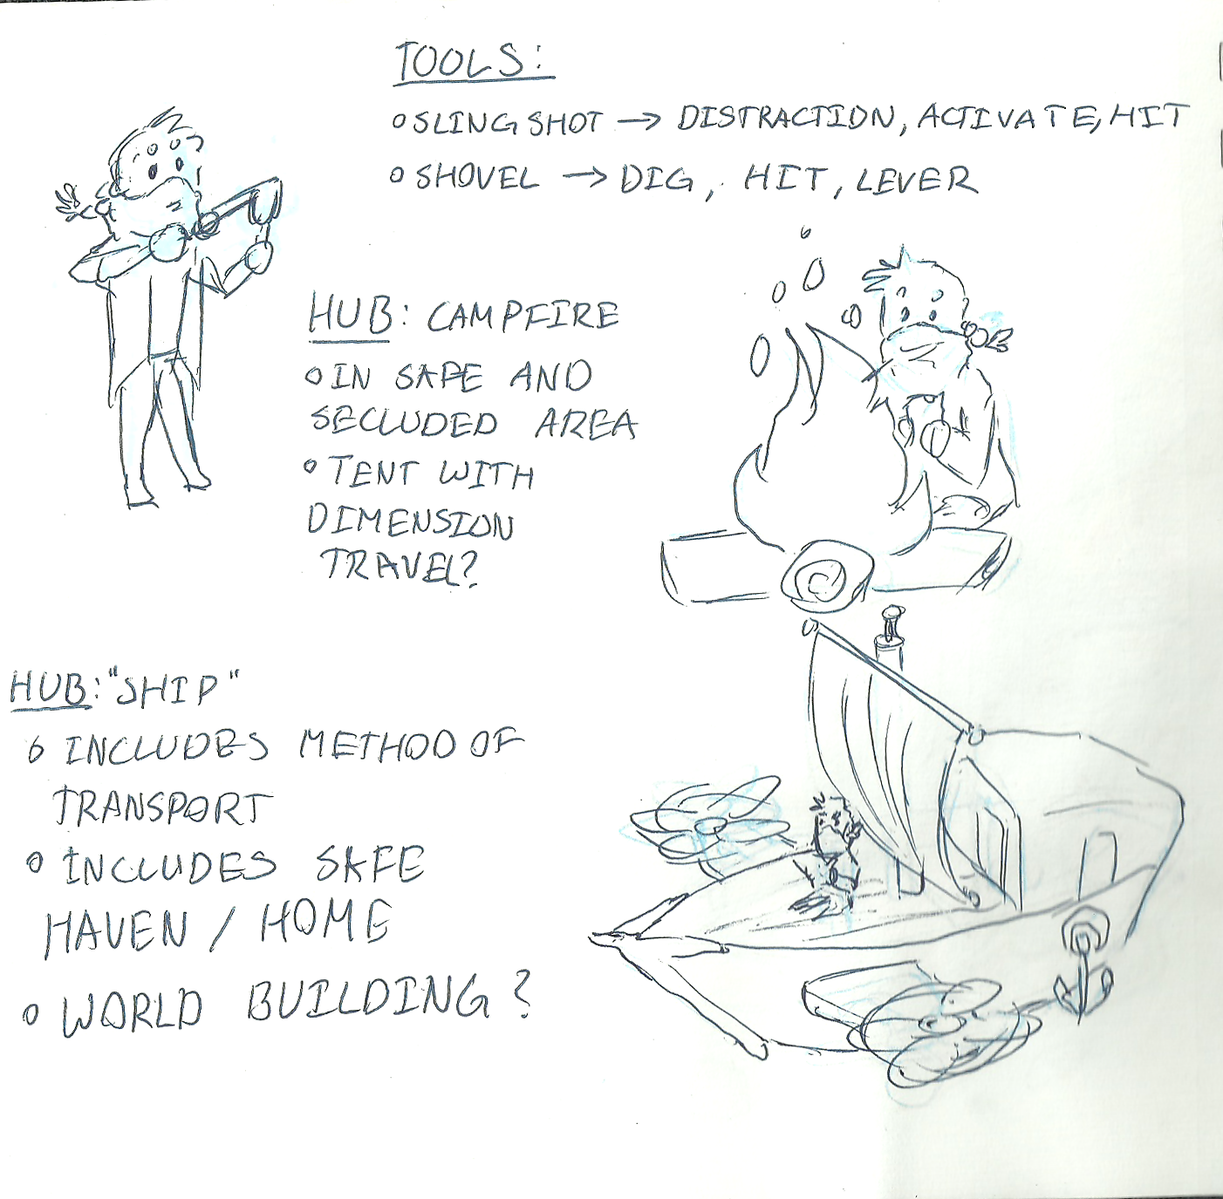 TOOLS:
o SLINGSHOT → DISTRACTION, ACTIVATE, HIT
o SHOVEL → DIG, HIT, LEVER
HUB: CAMPFIRE
o IN SAFE AND
SECLUDED AREA
o TENT WITH
DIMENSION
TRAVEL?
HUB: "SHIP"
o INCLUDES METHOD OF
TRANSPORT
o INCLUDES SAFE
HAVEN / HOME
o WORLD BUILDING?